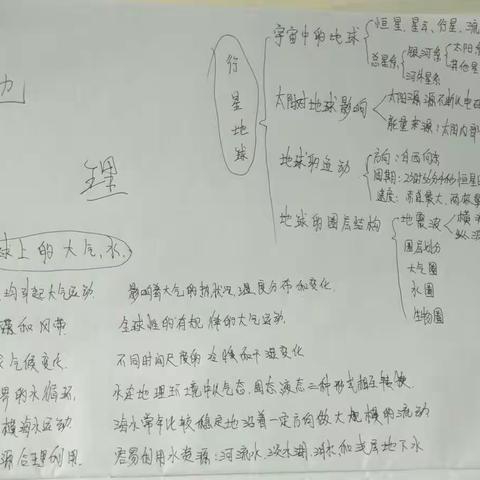 宇宙中的地球
恒星、星云、行星、流
总星系
银河系
太阳系
其他星
河外星系
行星地球
太阳对地球影响
太阳源源不断从电磁
能量来源:太阳内部
地球的运动
方向:自西向东
周期:23时56分4秒恒星日
速度:赤道最大,两极最
地球的圈层结构
地震波
横波
纵波
圈层划分
大气圈
水圈
生物圈
理
球上的大气,水
均引起大气运动 影响着大气的物状况,温度分布和变化.
带和风带 全球性的有规律的大气运动.
气候变化. 不同时间尺度的冷暖和干湿变化
界的水循环, 水在地理环境中以气态、固态液态三种形式相互转换.
模海水运动. 海水常年比较稳定地沿着一定方向做大规模的流动
源合理利用. 容易利用水资源:河流水,淡水湖,湖水和浅层地下水